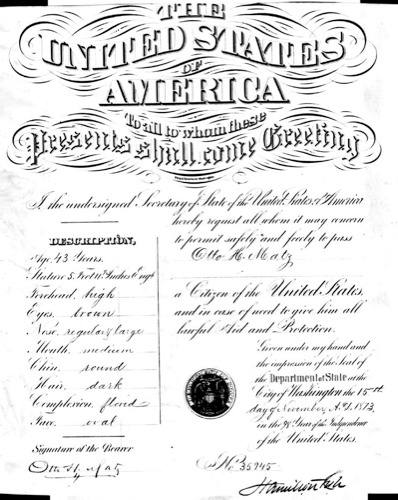 THE
UNITED STATES
OF
AMERICA
To all to whom these
Presents shall come Greeting
I the undersigned Secretary of State of the United States of America
hereby request all whom it may concern
to permit safely and freely to pass
Otto H. Matz
a Citizen of the United States
and in case of need to give him all
lawful Aid and Protection.
Given under my hand and
the impression of the Seal of
the Department of State at the
City of Washington the 15th
day of November A.D. 1873
in the 98 Year of the Independence
of the United States.
DESCRIPTION,
Age, 43 Years.
Stature 5. Feet Inches Eng
Forehead, high
Eyes, brown
Nose, regular, large
Mouth, medium
Chin, round
Hair, dark
Complexion, florid
Face, oval
Signature of the Bearer
Otto H. Matz
No 35945
Hamilton Fish